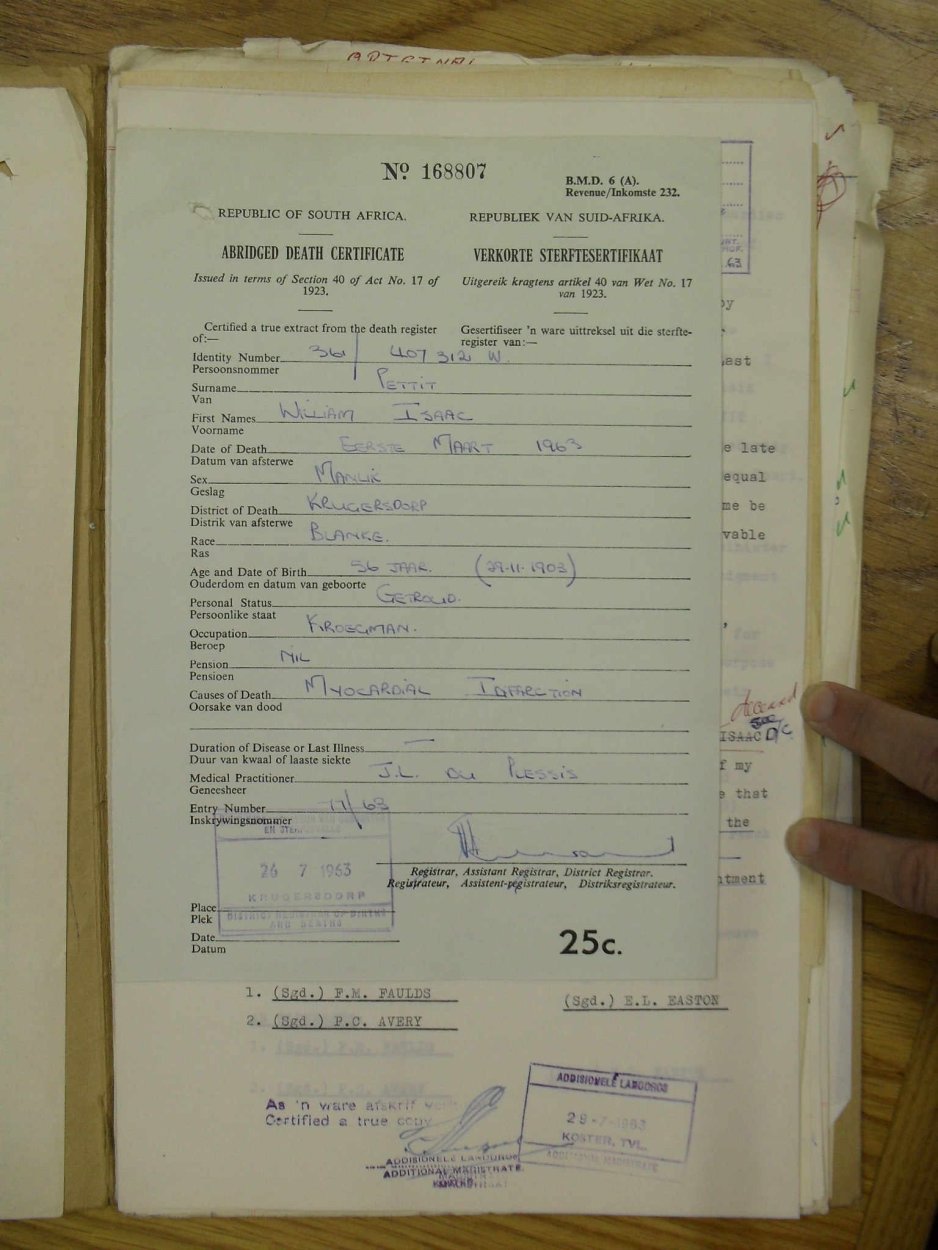 Nº 168807
B.M.D. 6 (A).
Revenue/Inkomste 232.
REPUBLIC OF SOUTH AFRICA.
REPUBLIEK VAN SUID-AFRIKA.
ABRIDGED DEATH CERTIFICATE
VERKORTE STERFTESERTIFIKAAT
Issued in terms of Section 40 of Act No. 17 of
1923.
Uitgereik kragtens artikel 40 van Wet No. 17
van 1923.
Certified a true extract from the death register
of:—
Gesertifiseer 'n ware uittreksel uit die sterfte-
register van:—
Identity Number 361 / 407312 W.
Persoonsnommer
Surname PETTIT
Van
First Names WILLIAM ISAAC
Voorname
Date of Death EERSTE MAART 1963
Datum van afsterwe
Sex MANLIK
Geslag
District of Death KRUGERSDORP
Distrik van afsterwe
Race BLANKE.
Ras
Age and Date of Birth 56 JAAR. (29-11-1903)
Ouderdom en datum van geboorte
Personal Status GETROUD.
Persoonlike staat
Occupation KROEGMAN.
Beroep
Pension NIL
Pensioen
Causes of Death MYOCARDIAL INFARCTION
Oorsake van dood
Duration of Disease or Last Illness —
Duur van kwaal of laaste siekte
Medical Practitioner J.L. DU PLESSIS
Geneesheer
Entry Number 77/63
Inskrywingsnommer
EN STERFGEVALLE
26 7 1963
KRUGERSDORP
DISTRICT REGISTRAR OF BIRTHS
AND DEATHS
Registrar, Assistant Registrar, District Registrar.
Registrateur, Assistent-registrateur, Distriksregistrateur.
Place
Plek
Date
Datum
25c.
e late
equal
me be
vable
ISAAC
f my
e that
the
1. (Sgd.) F.M. FAULDS
(Sgd.) E.L. EASTON
2. (Sgd.) P.C. AVERY
As 'n ware afskrif
Certified a true copy
ADDISIONELE LANDDROS
ADDITIONAL MAGISTRATE
ADDISIONELE LANDDROS
29-7-1963
KOSTER, TVL.
ADDITIONAL MAGISTRATE